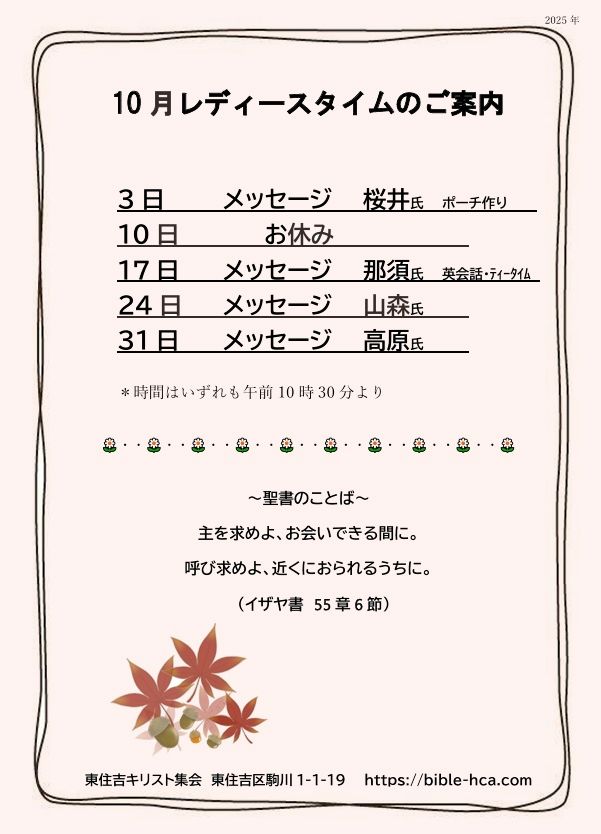 2025 年
10 月レディースタイムのご案内
3 日 メッセージ 桜井氏 ポーチ作り
10 日 お休み
17 日 メッセージ 那須氏 英会話・ティータイム
24 日 メッセージ 山森氏
31 日 メッセージ 高原氏
＊時間はいずれも午前 10 時 30 分より
～聖書のことば～
主を求めよ、お会いできる間に。
呼び求めよ、近くにおられるうちに。
（イザヤ書 55 章 6 節）
東住吉キリスト集会 東住吉区駒川 1-1-19 https://bible-hca.com